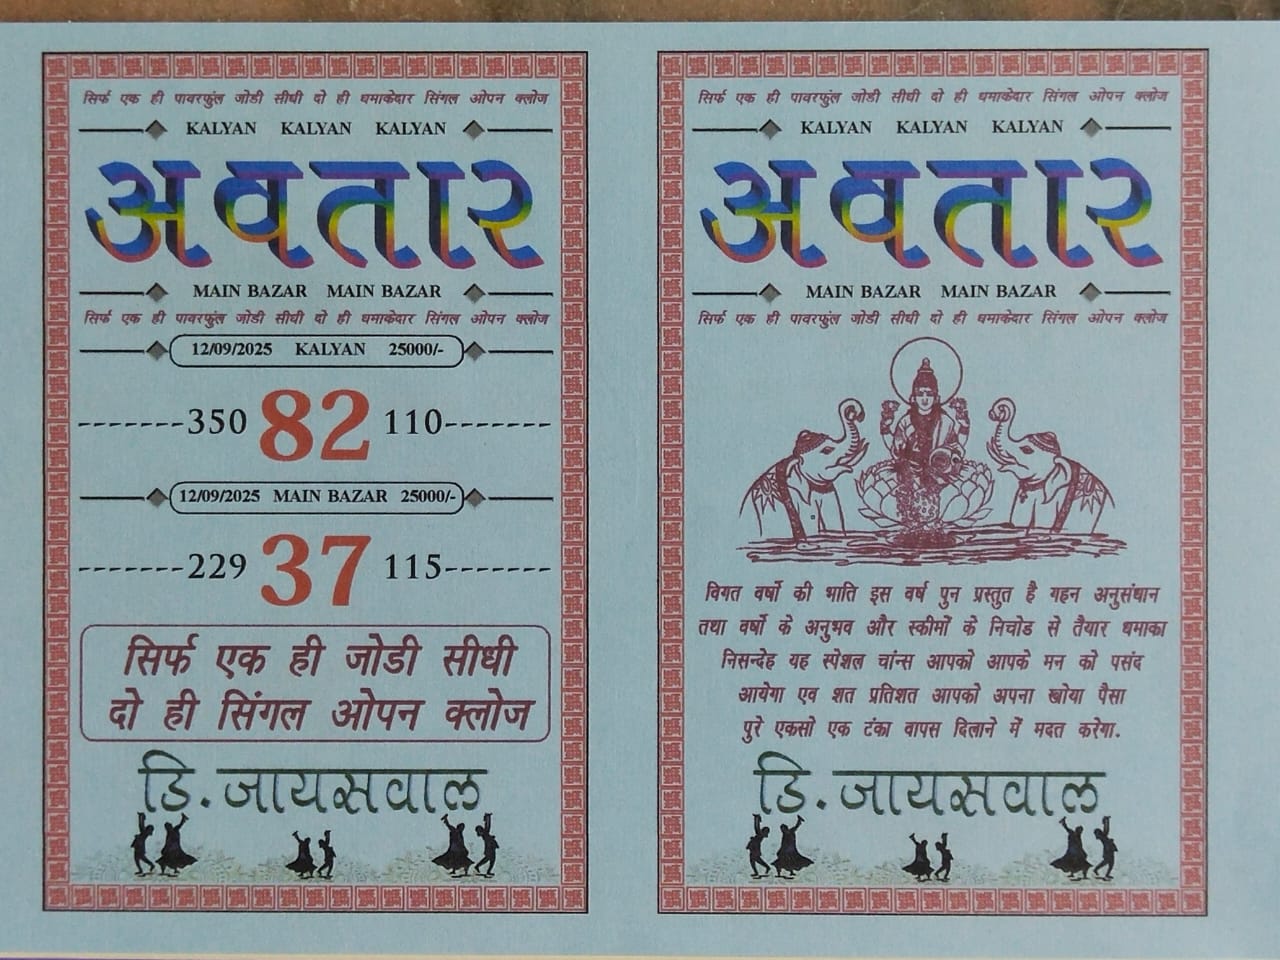 सिर्फ एक ही पावरफुंल जोडी सीधी दो ही धमाकेदार सिंगल ओपन क्लोज
KALYAN KALYAN KALYAN
अवतार
MAIN BAZAR MAIN BAZAR
सिर्फ एक ही पावरफुंल जोडी सीधी दो ही धमाकेदार सिंगल ओपन क्लोज
12/09/2025 KALYAN 25000/-
-------350 82 110-------
12/09/2025 MAIN BAZAR 25000/-
-------229 37 115-------
सिर्फ एक ही जोडी सीधी
दो ही सिंगल ओपन क्लोज
डि.जायसवाल
सिर्फ एक ही पावरफुंल जोडी सीधी दो ही धमाकेदार सिंगल ओपन क्लोज
KALYAN KALYAN KALYAN
अवतार
MAIN BAZAR MAIN BAZAR
सिर्फ एक ही पावरफुंल जोडी सीधी दो ही धमाकेदार सिंगल ओपन क्लोज
विगत वर्षो की भाति इस वर्ष पुन प्रस्तुत है गहन अनुसंधान
तथा वर्षो के अनुभव और स्कीमों के निचोड से तैयार धमाका
निसन्देह यह स्पेशल चांन्स आपको आपके मन को पसंद
आयेगा एव शत प्रतिशत आपको अपना खोया पैसा
पुरे एकसो एक टंका वापस दिलाने में मदत करेगा.
डि.जायसवाल